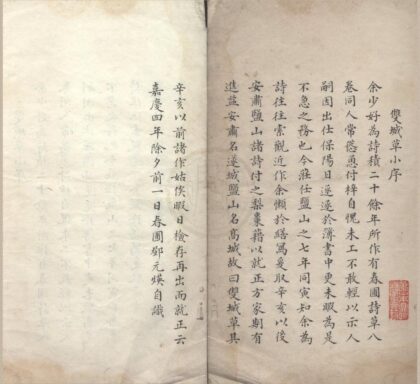 雙城草小序
余少好為詩積二十餘年所作有春圃詩草八
卷同人常慫恿付梓自愧未工不敢輕以示人
嗣因出仕保陽日遂遂於簿書中更未暇為是
不急之務也今蒞任鹽山之七年同寅知余為
詩往往索觀近作余懶於繕寫爰取辛亥以後
安肅鹽山諸詩付之梨棗藉以就正方家剔有
進益安肅名遂城鹽山名髙城故曰雙城草其
辛亥以前諸作姑俟暇日檢存再出而就正云
嘉慶四年除夕前一日春圃鄧元煐自識